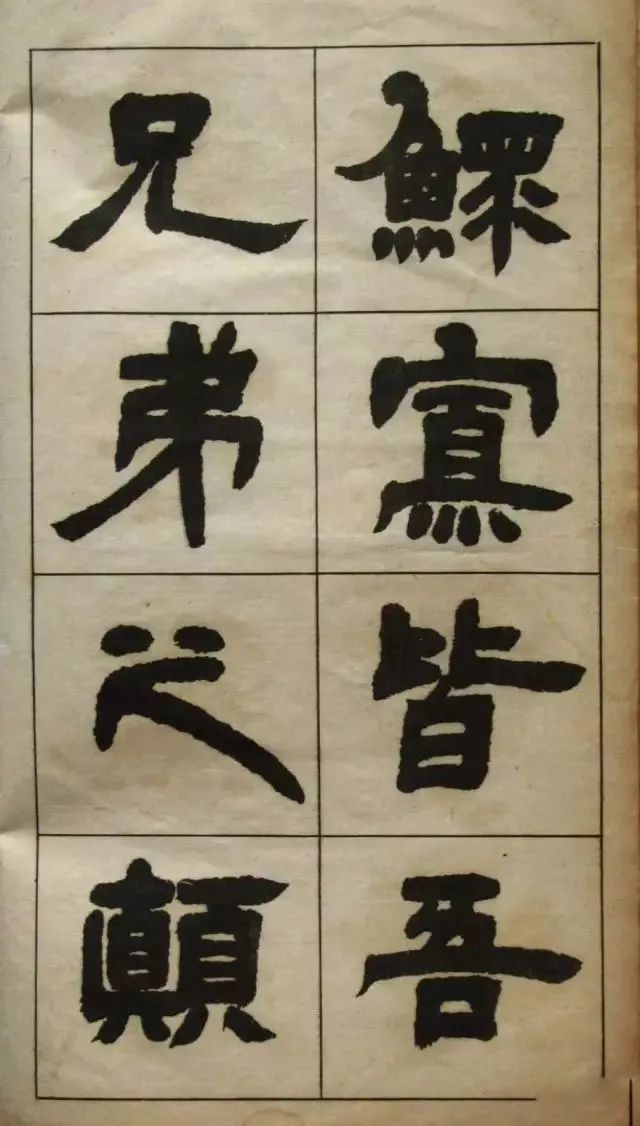 鰥寡皆吾
兄弟之顛